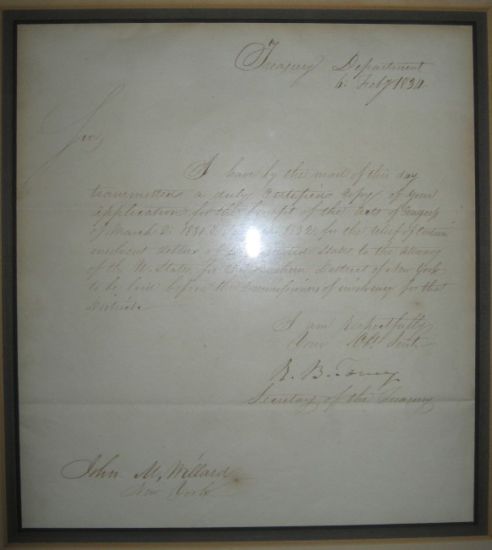 Treasury Department
6. Feby 1834
Sir,
I have by the mail of this day
transmitted a duly Certified Copy of your
application for the benefit of the Acts of Congress
of March 2. 1831 & 1832 for the relief of certain
insolvent debtors of the United States to the Attorney
of the U. States for the Southern District of New York
to be laid before the Commissioners of insolvency for that
District.
I am respectfully
Your Obt. Servt.
R. B. Taney
Secretary of the Treasury
John M. Willard
New York